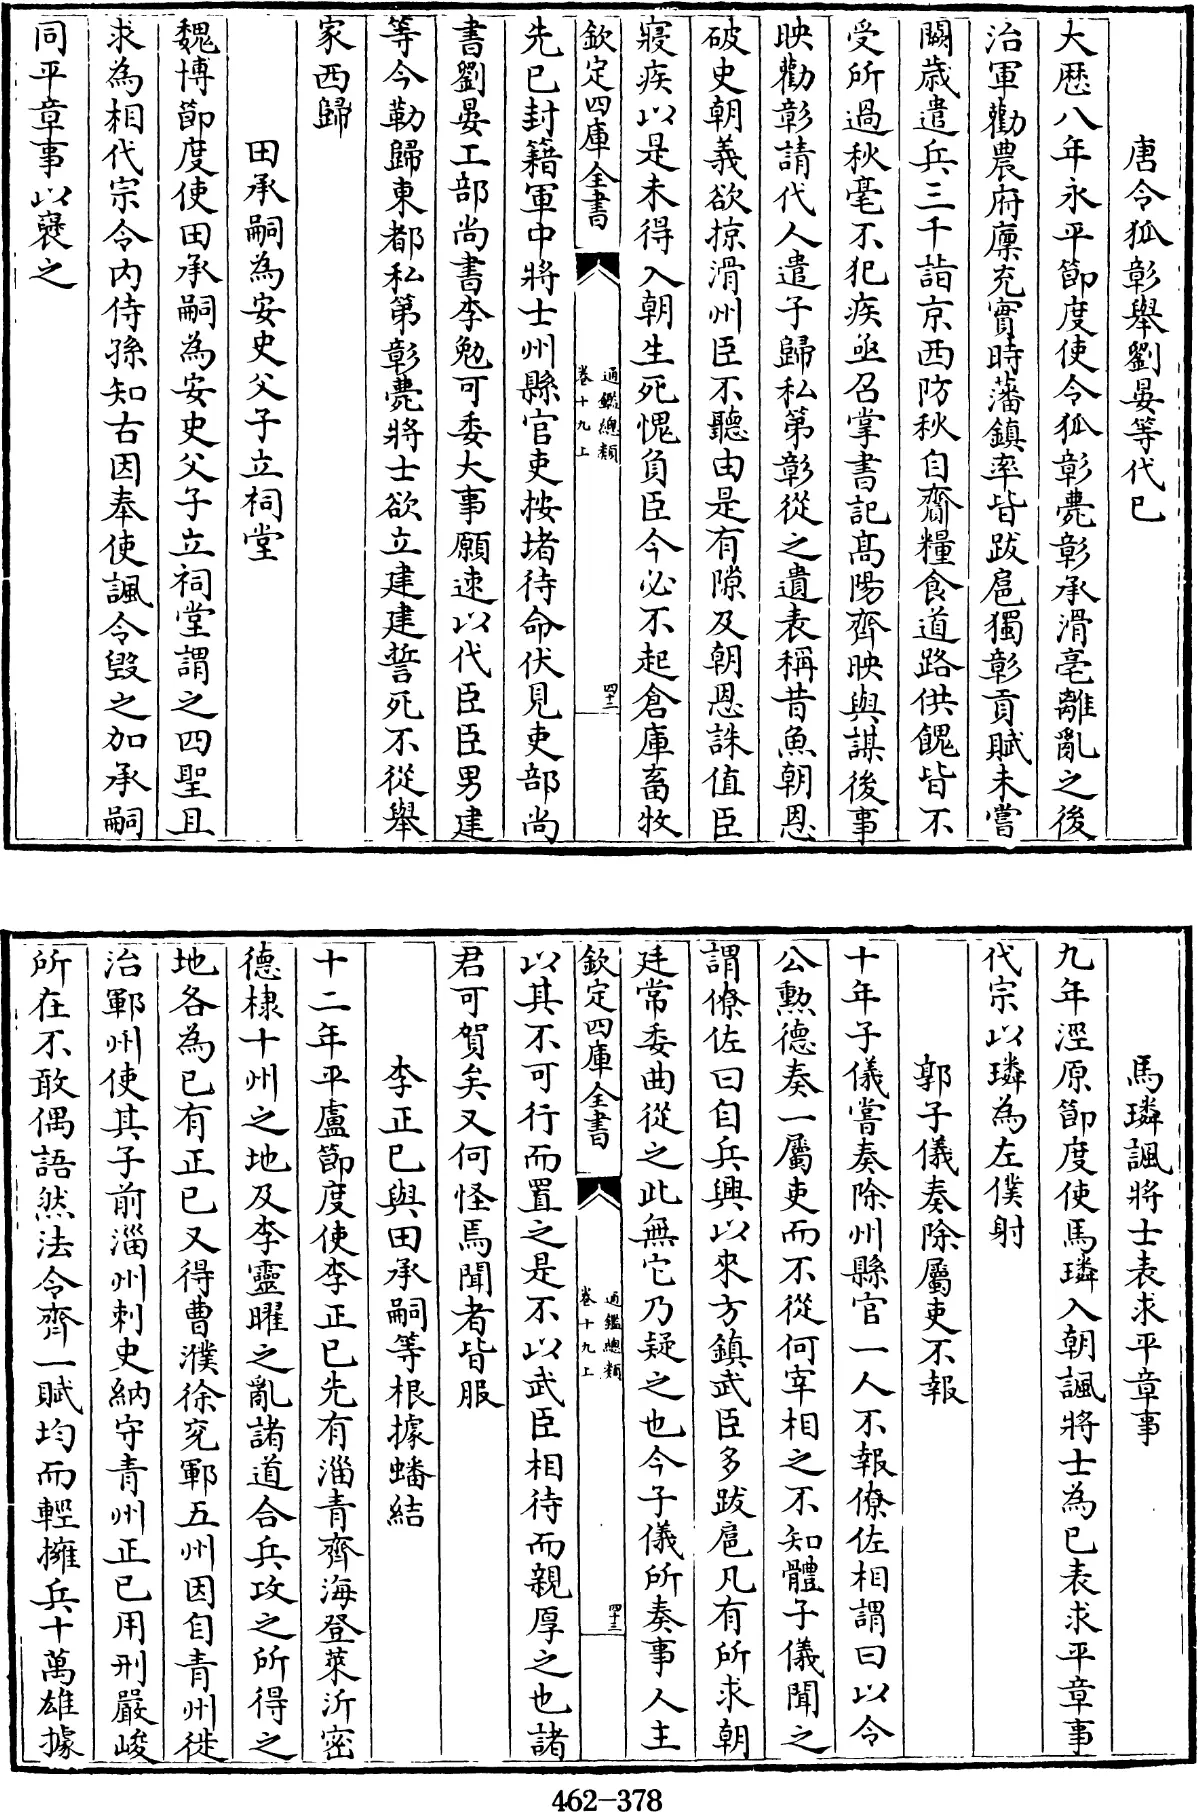 唐令狐彰舉劉晏等代已
大厯八年永平節度使令狐彰薨彰承滑亳離亂之後
治軍勸農府廩充實時藩鎮率皆跋扈獨彰貢賦未嘗
闕歳遣兵三千詣京西防秋自齎糧食道路供餽皆不
受所過秋毫不犯疾亟召掌書記髙陽齊映與謀後事
映勸彰請代人遣子歸私第彰從之遺表稱昔魚朝恩
破史朝義欲掠滑州臣不聽由是有隙及朝恩誅值臣
寢疾以是未得入朝生死愧負臣今必不起倉庫畜牧
欽定四庫全書
通鑑總類
卷十九上
四十二
先已封籍軍中將士州縣官吏按堵待命伏見吏部尚
書劉晏工部尚書李勉可委大事願速以代臣臣男建
等今勒歸東都私第彰薨將士欲立建建誓死不從舉
家西歸
田承嗣為安史父子立祠堂
魏博節度使田承嗣為安史父子立祠堂謂之四聖且
求為相代宗令內侍孫知古因奉使諷令毀之加承嗣
同平章事以襃之
馬璘諷將士表求平章事
九年涇原節度使馬璘入朝諷將士為已表求平章事
代宗以璘為左僕射
郭子儀奏除屬吏不報
十年子儀嘗奏除州縣官一人不報僚佐相謂曰以令
公勲德奏一屬吏而不從何宰相之不知體子儀聞之
謂僚佐曰自兵興以來方鎮武臣多跋扈凡有所求朝
廷常委曲從之此無它乃疑之也今子儀所奏事人主
欽定四庫全書
通鑑總類
卷十九上
四十三
以其不可行而置之是不以武臣相待而親厚之也諸
君可賀矣又何怪焉聞者皆服
李正已與田承嗣等根據蟠結
十二年平盧節度使李正已先有淄青齊海登萊沂密
德棣十州之地及李靈曜之亂諸道合兵攻之所得之
地各為已有正已又得曹濮徐兖鄆五州因自青州徙
治鄆州使其子前淄州刺史納守青州正已用刑嚴峻
所在不敢偶語然法令齊一賦均而輕擁兵十萬雄據
462-378